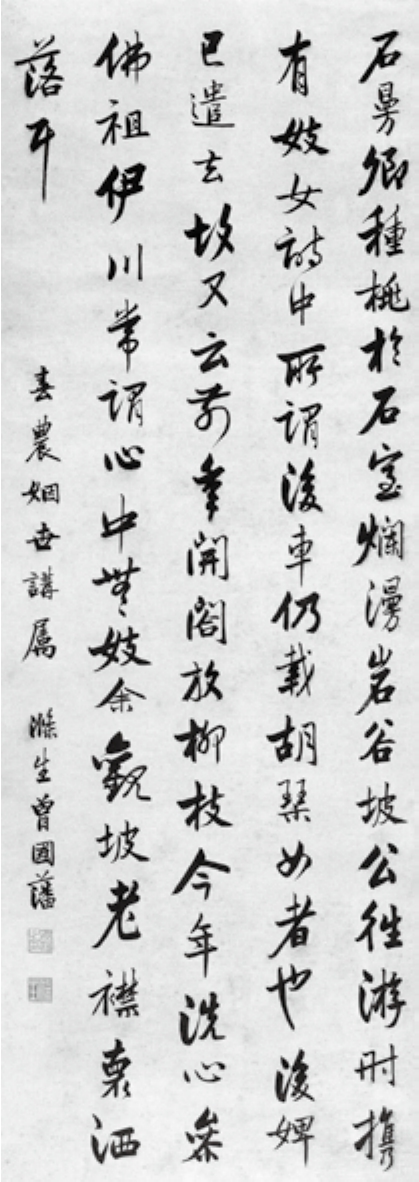 石曼卿種桃於石室爛漫岩谷坡公往游時攜
有妓女詩中所謂後車仍載胡琴女者也後婢
已遣去故又云前年開閤放柳枝今年洗心參
佛祖伊川常謂心中無妓余觀坡老襟裏洒
落耳
春農姻世講屬 滌生曾國藩